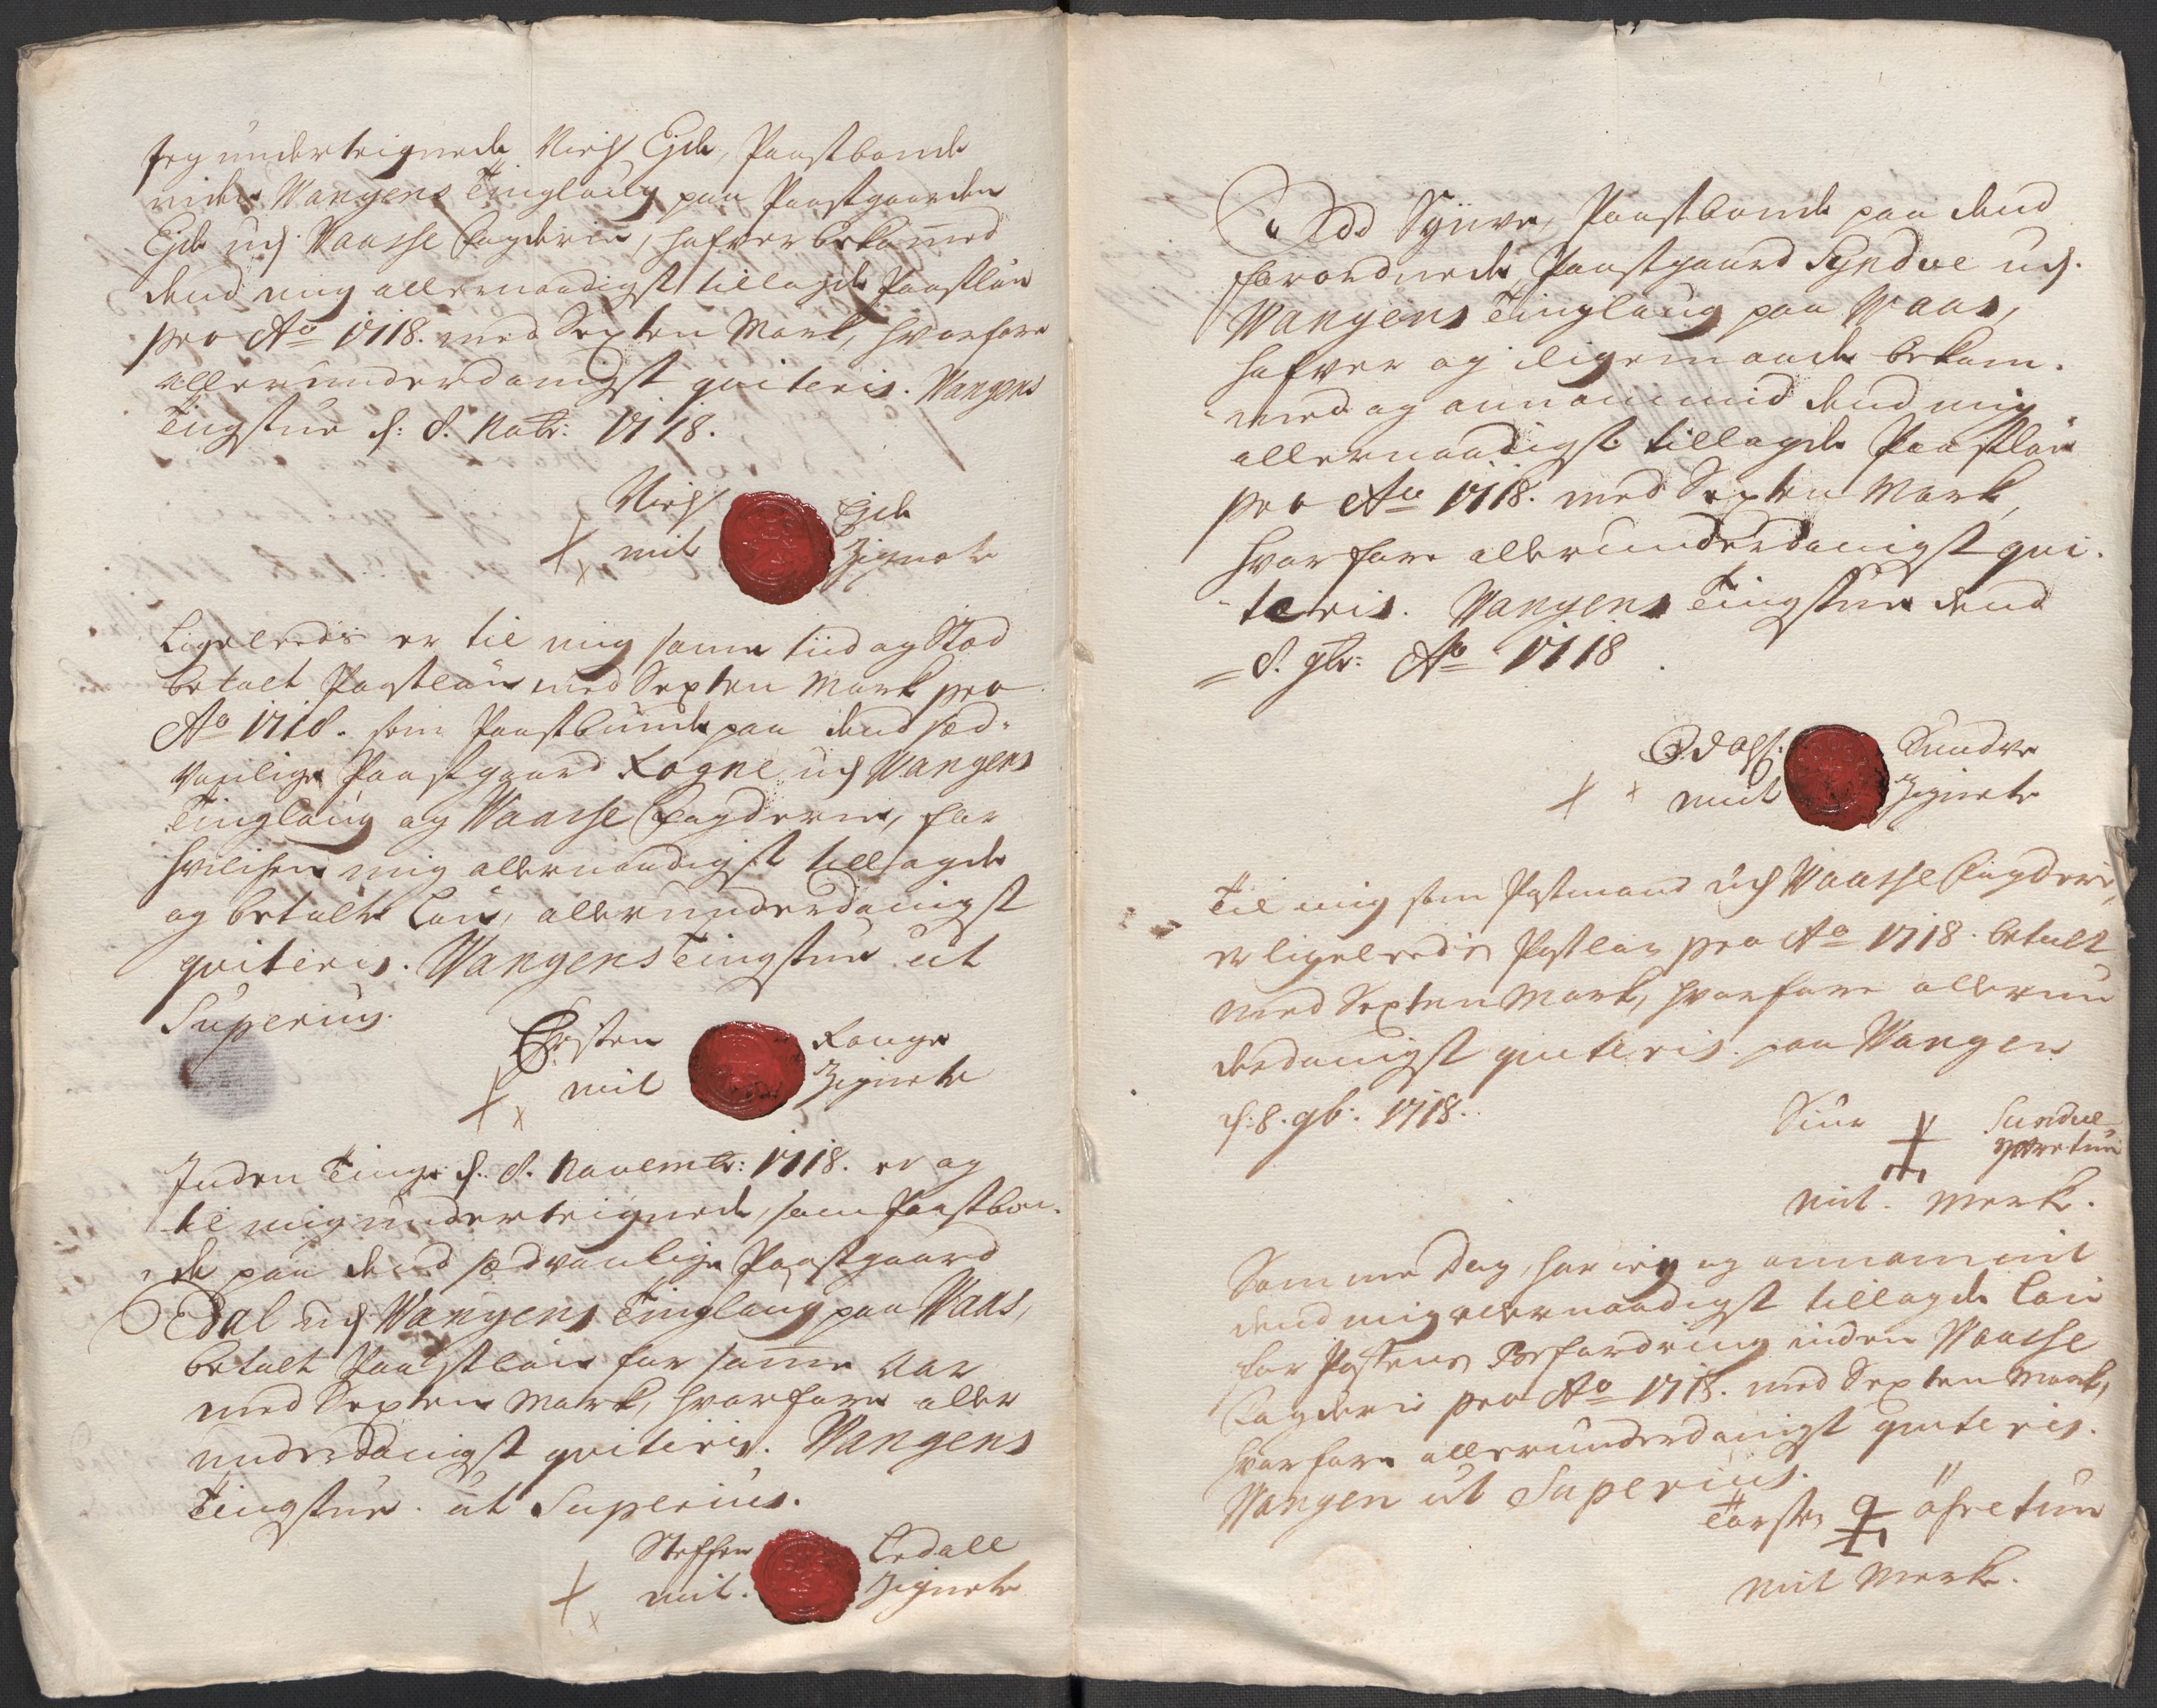 Jeg underteignede Niels Ejde, Paastbonde
vider Wangens Tinglaug paa Paastgaarden
Ejde udj Vaasse fogderie, hafver bekommed
dend mig allernaadigst tillagde Paastløn
pro Ao 1718. med Sexten Mark, hvorfore
allerunderdanigst quiteris. Wangens
Tingstue d: 8. Nobr: 1718.
Niels Ejde
mit Zignete
Ligeleedis er til mig samme tiid og Stæd
betalt Paastløn med Sexten Mark pro
Ao 1718. som Paastbunde paa dend sæd-
vanlige Paastgaard Rogne udj Wangens
Tinglaug og Waasse fogderie, for
hvilchen mig allernaadigst tillagde
og betalte Løn, allerunderdanigst
qviteris. Wangens Tingstue ut
Superius.
Torsten Rougne
mit Zignete
Inden Tinge d. 8. Novembr: 1718. er og
til mig underteignede, som Paastbon-
de paa dend sædvanlige Paastgaard
Edal udj Wangens Tinglaug paa Waas,
betalt Paastløn for samme Aar
med Sexten Mark, hvorfore aller
underdanigst qviteris. Wangens
Tingstue ut Superius.
Steffen Ledall
mit Zignete
Odd Synve, Paastbonde paa dend
forordnede Paastgaard Syndve udj
Wangens Tinglaug paa Waas,
hafver og ligemaade bekom-
med og annammid dend mig
allernaadigst tillagde Paastløn
pro Ao 1718. med Sexten Mark,
hvorfore allerunderdanigst qui-
teris. Wangens Tingstue dend
8. 9br: Ao 1718
Odd Sundve
mit Zignete
Til mig som Postmand udj Waasse fogderie,
er ligeleedis Postløn pro Ao 1718. betalt
med Sexten Mark, hvorfore allerun
derdanigst quiteris paa Wangen
d: 8. 9b: 1718.
Siur Sundve
yttretun
mit Merk.
Samme Dag, har ieg og annammit
dend mig allernaadigst tillagde Løn
for Postens Befordring inden Waasse
fogderie pro Ao 1718. med Sexten Mark,
hvorfore allerunderdanigst quiteris.
Wangen ut Superius.
Torsten öfretun
mit Merke.